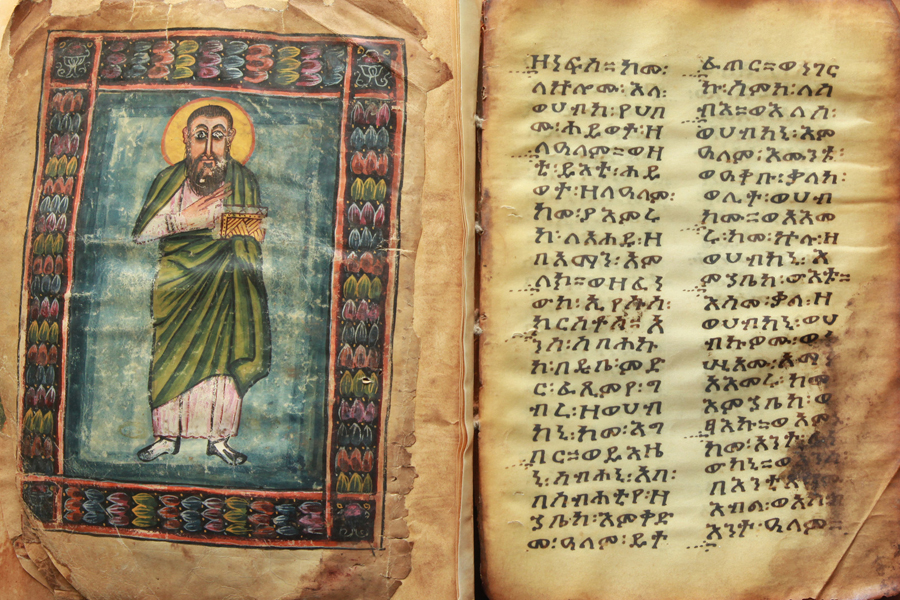 ዘነፍስ። ከመ፡
ለኵሎሙ፡ እለ፡
ወሀብከ፡ የሀበ
ሙ፡ ሕይወተ፡ ዘ
ለዓለም። ወዛ
ቲ፡ ይእቲ፡ ሕይ
ወት፡ ዘለዓለም፡
ከመ፡ ያእምሩ
ከ፡ ለአሐዱ፡ ዘ
በአማን፡ አም
ላክ። ወዘፈነ
ውከ፡ ኢየሱስ፡
ክርስቶስ። አ
ንሰ፡ ሰባሕኩ
ከ፡ በዲበ፡ ምድ
ር፡ ፈጺምየ፡ ግ
ብረ፡ ዘወሀብ
ከኒ፡ ከመ፡ እግ
በር። ወይእዜ
ኒ፡ ሰብሐኒ፡ አባ፡
በስብሐቲየ፡ ዘ
ኀቤከ፡ እምቅድ
መ፡ ዓለም፡ ይት
ፈጠር። ወነገር
ኩ፡ ስምከ፡ ለሰ
ብእ። ወእለሰ፡
ወሀብከኒ፡ እም
ዓለም፡ እሙንቱ፡
ወዐቀቡ፡ ቃለከ፡
ወሊተ፡ ወሀብ
ከሙ። ወአእመ
ሩ፡ ከመ፡ ኵሉ፡ ዘ
ወሀብከኒ፡ እ
ምኀቤከ፡ ውእቱ።
እስመ፡ ቃለ፡ ዘ
ወሀብከኒ፡ ወሀ
ብኩዎሙ፡
አእመሩ፡ ከመ
እምኀቤከ፡ ወ
ፃእኩ።
ከመ፡ አንተ፡
ወከኒ።
እብል፡
እንተ፡ ዓለም።